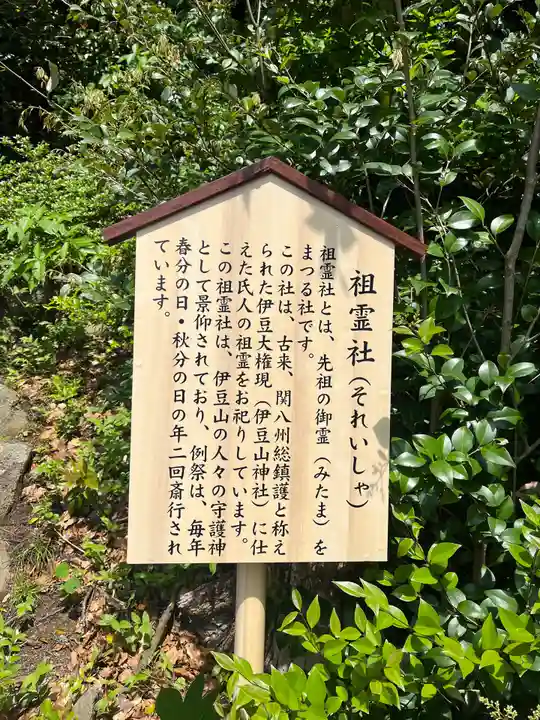 祖霊社(それいしゃ)
祖霊社とは、先祖の御霊(みたま)を
まつる社です。
この社は、古来、関八州総鎮護と称え
られた伊豆大権現(伊豆山神社)に仕
えた氏人の祖霊をお祀りしています。
この祖霊社は、伊豆山の人々の守護神
として景仰されており、例祭は、毎年
春分の日・秋分の日の年二回斎行され
ています。